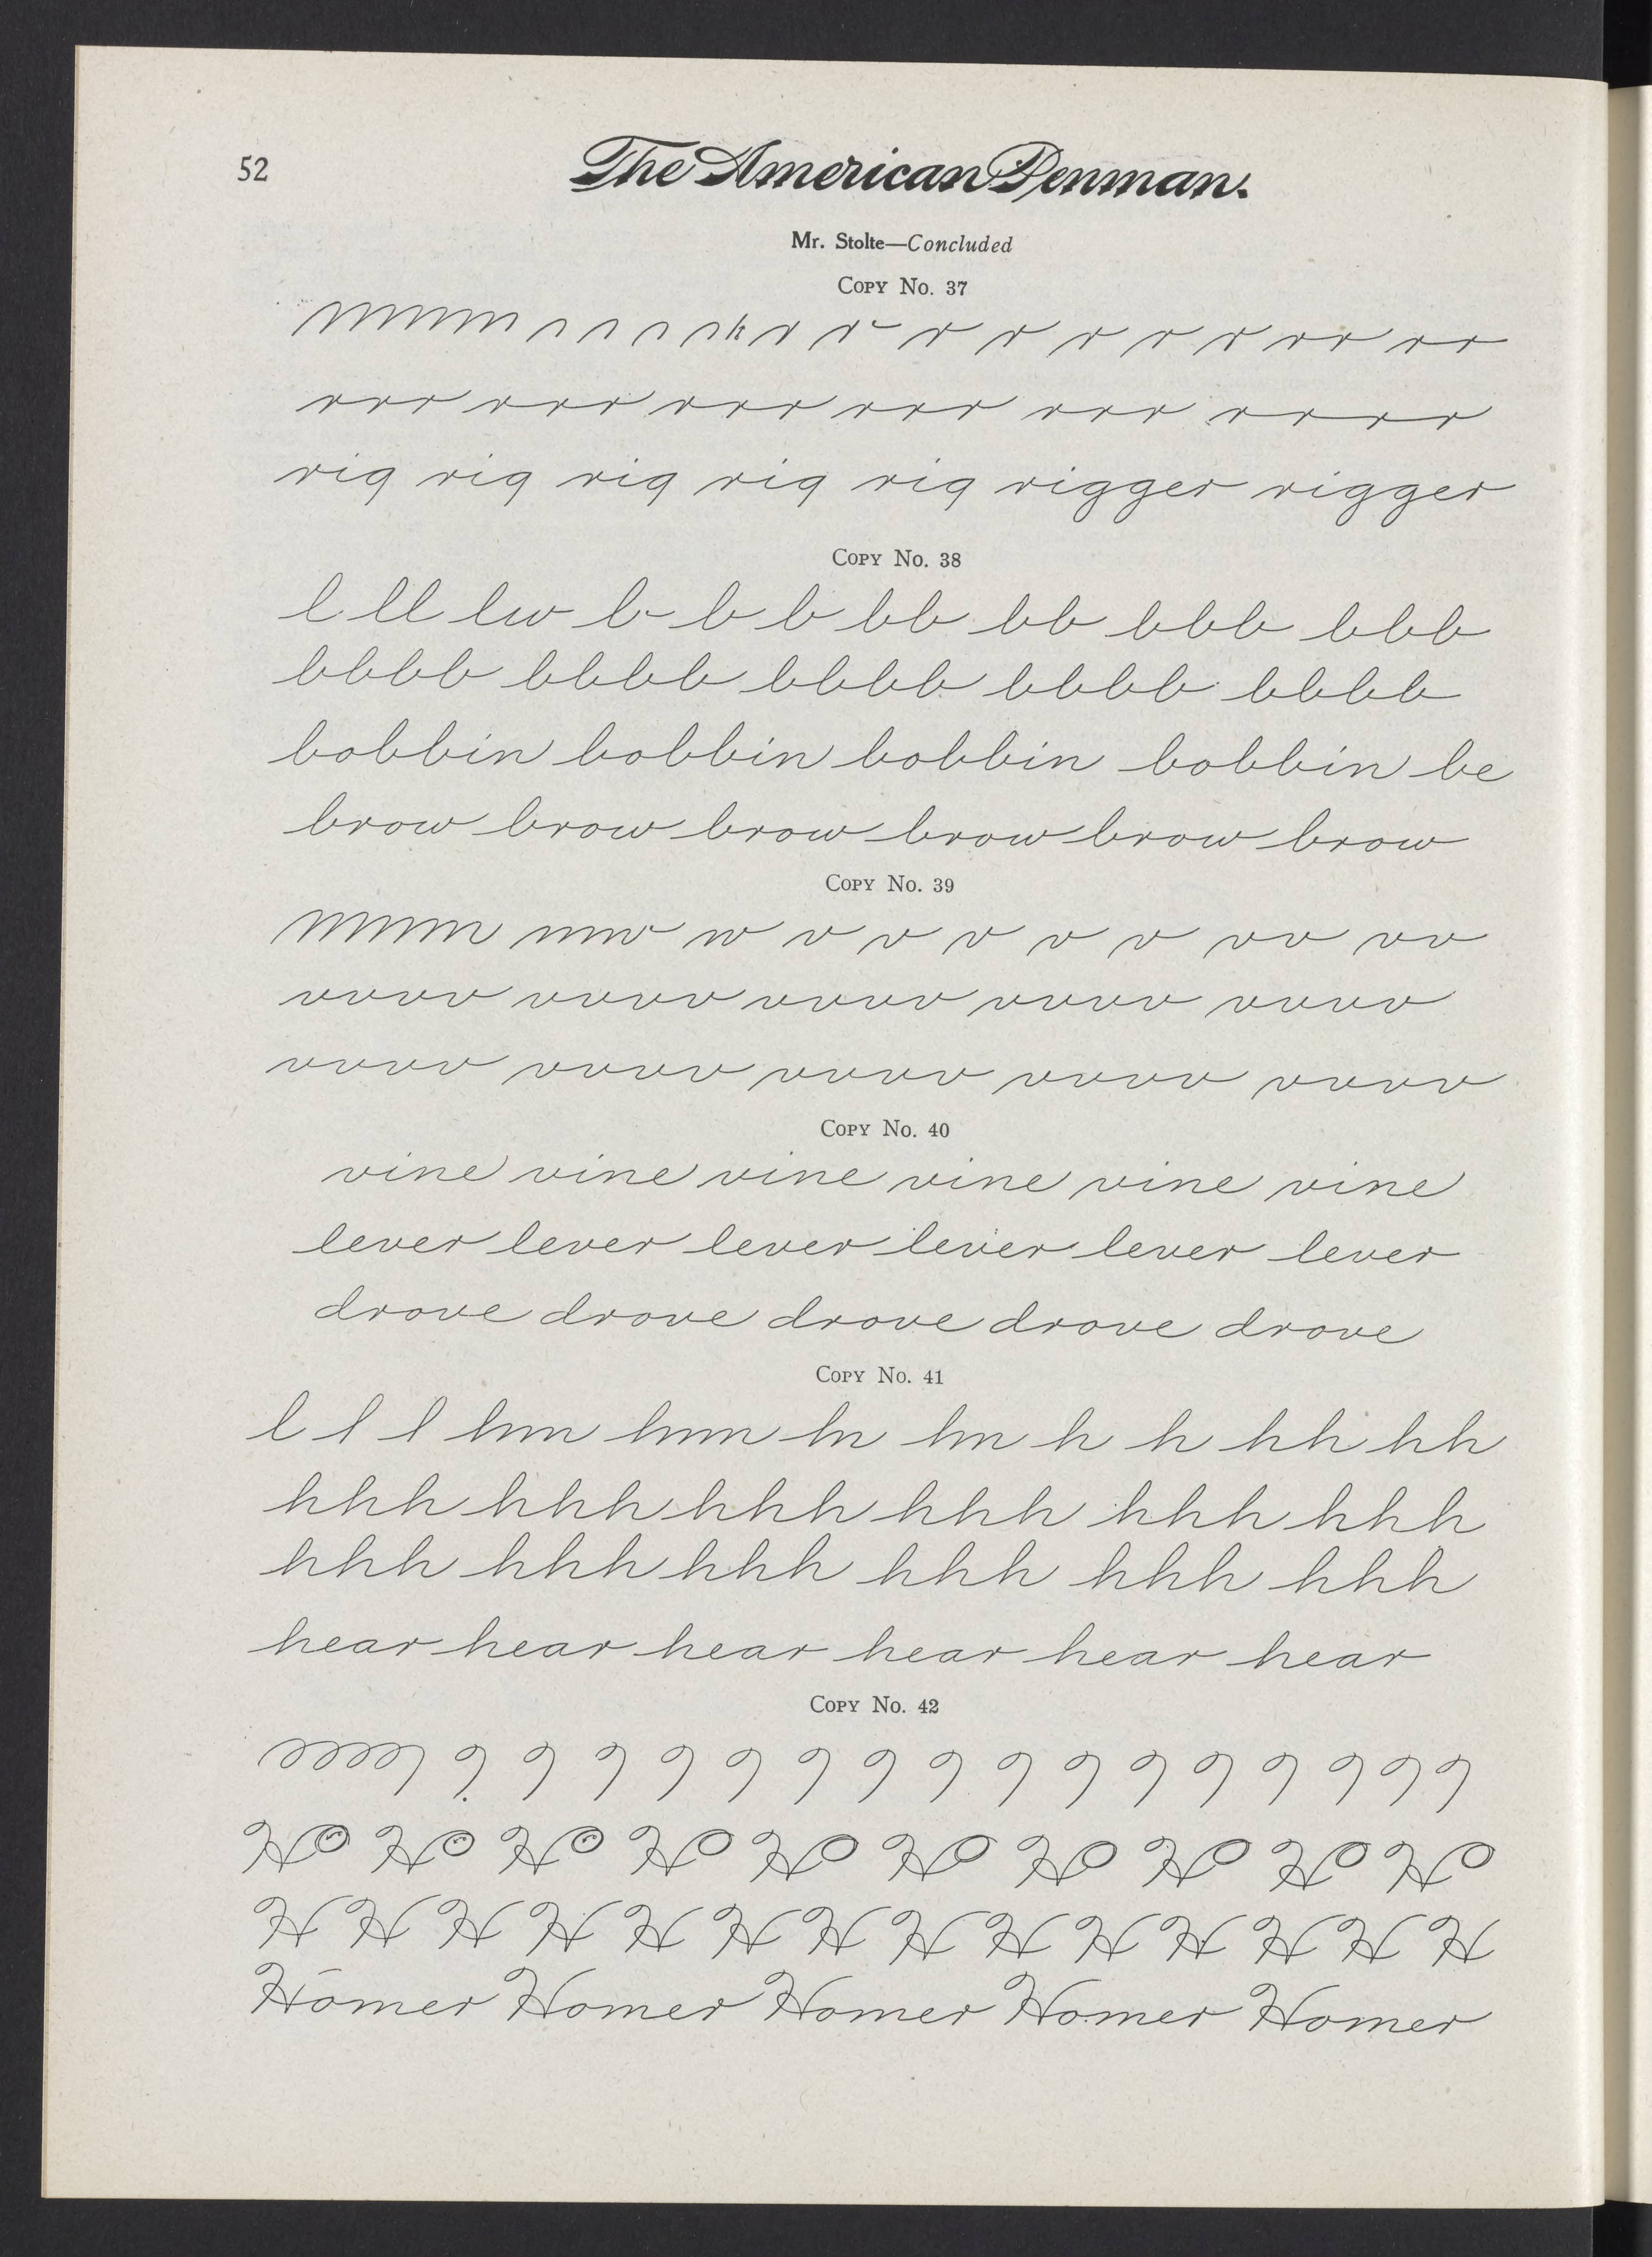 52
The American Penman.
Mr. Stolte—Concluded
Copy No. 37
r r r r r r r r r r r r
rrr rrr rrr rrr rrr rrrr
rig rig rig rig rig rigger rigger
Copy No. 38
l ll lw b b b bb bb bbb bbb
bbbb bbbb bbbb bbbb bbbb
bobbin bobbin bobbin bobbin be
brow brow brow brow brow brow
Copy No. 39
v v v v v vv vv
vvvv vvvv vvvv vvvv vvvv
vvvv vvvv vvvv vvvv vvvv
Copy No. 40
vine vine vine vine vine vine
lever lever lever lever lever lever
drove drove drove drove drove
Copy No. 41
l l l h h hh hh
hhh hhh hhh hhh hhh hhh
hhh hhh hhh hhh hhh hhh
hear hear hear hear hear hear
Copy No. 42
HO HO HO HO HO HO HO HO HO HO
H H H H H H H H H H H H H H
Homer Homer Homer Homer Homer